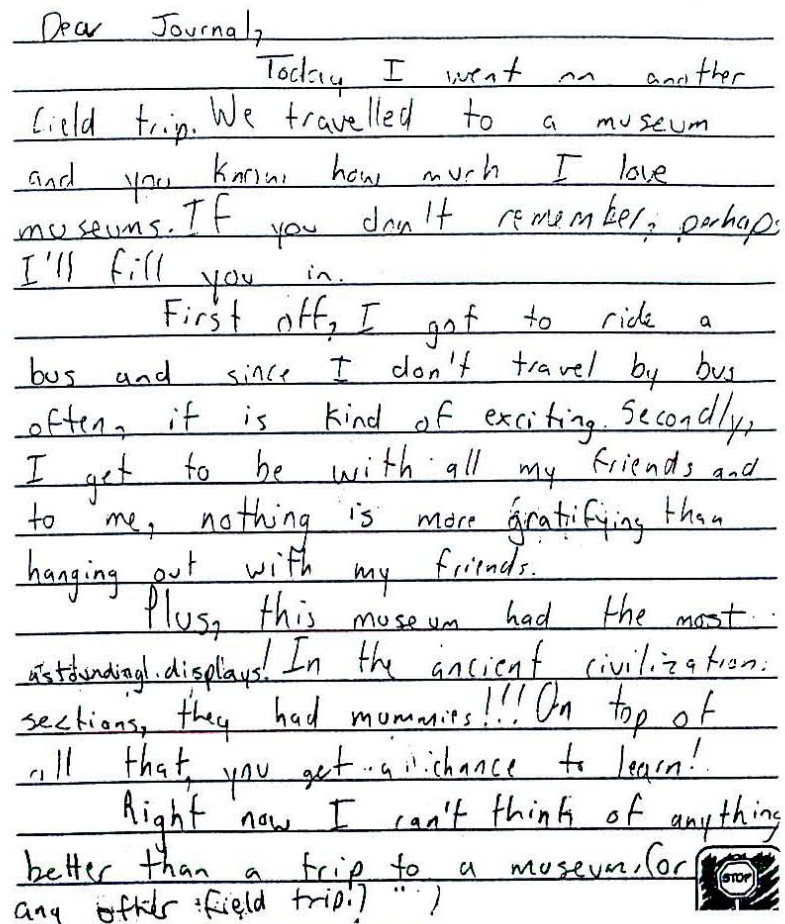 Dear Journal,
Today I went on another
field trip. We travelled to a museum
and you know how much I love
museums. If you don't remember, perhaps
I'll fill you in.
First off, I got to ride a
bus and since I don't travel by bus
often, it is kind of exciting. Secondly,
I get to be with all my friends and
to me, nothing is more gratifying than
hanging out with my friends.
Plus, this museum had the most
astounding displays! In the ancient civilization
sections, they had mummies!!! On top of
all that, you get a chance to learn!
Right now I can't think of anything
better than a trip to a museum. (or
STOP
any other field trip!) :)